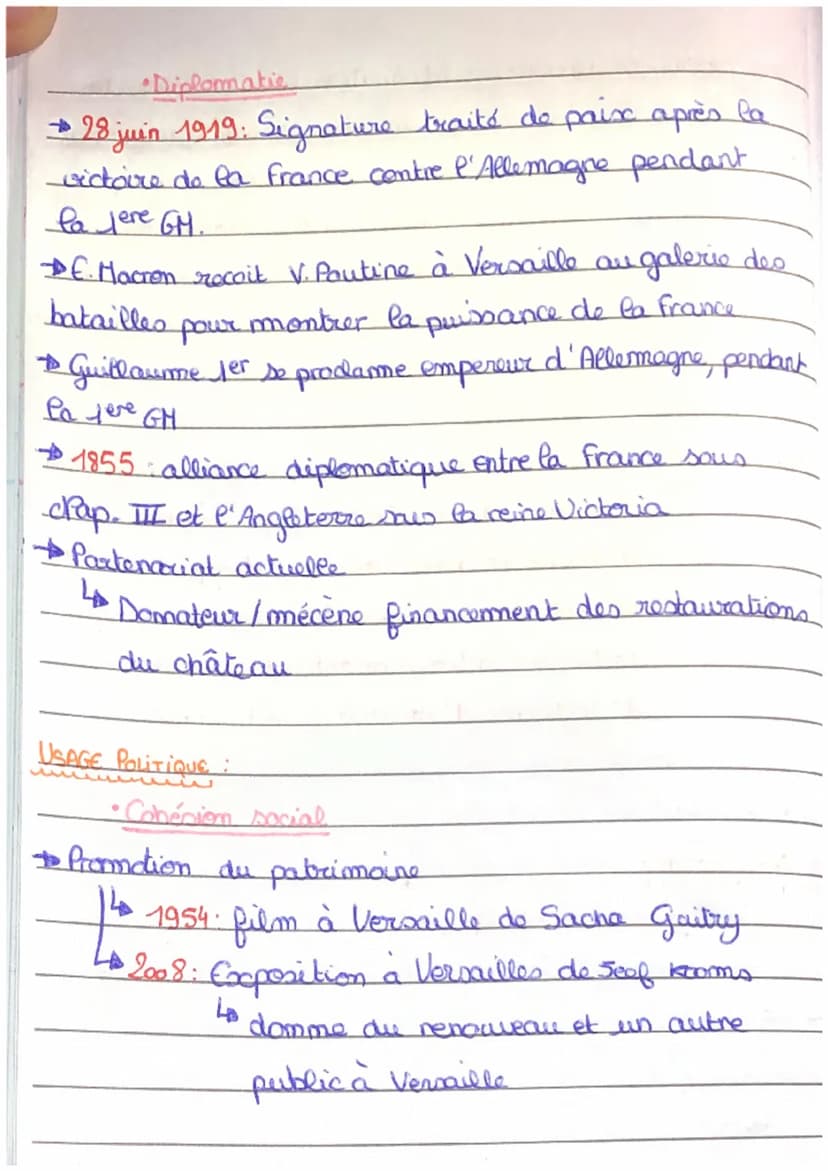 • Diplomatie
→ 28 juin 1919: Signature traité de paix après la
victoire de la France contre l'Allemagne pendant
la 1ere GM.
→ E. Macron recoit V. Poutine à Versaille au galerie des
batailles pour montrer la puissance de la France
→ Guillaume 1er se proclame empereur d'Allemagne, pendant
la 1ere GM
→ 1855 : alliance diplomatique entre la France sous
Nap. III et l'Angleterre sous la reine Victoria
→ Partenariat actuelle
↳ Donnateur / mécène financement des restaurations
du château
USAGE POLITIQUE :
• Cohésion social
→ Promotion du patrimoine
↳ 1954: film à Versaille de Sacha Gaitry
↳ 2008: Exposition à Versailles de Jeef Kooms
↳ donne du renouveau et un autre
public à Versaille